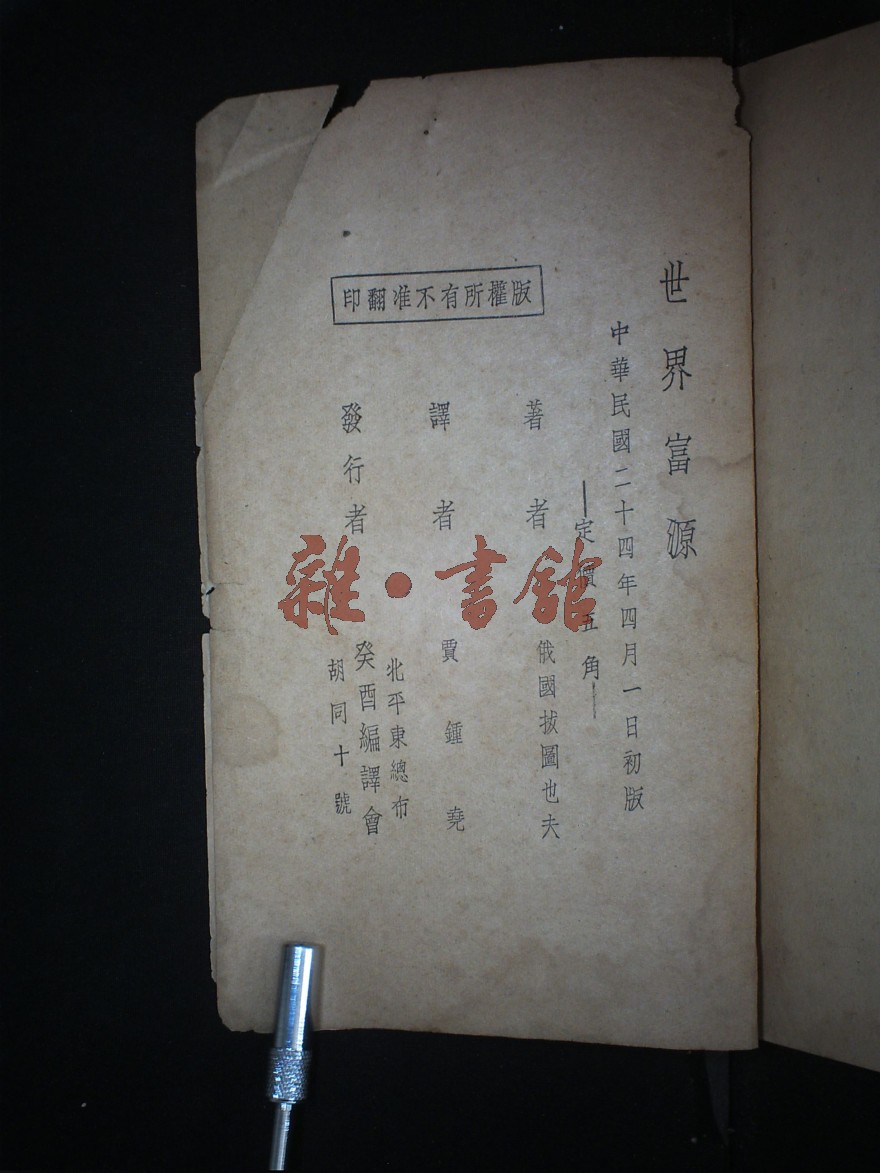 世界富源
中華民國二十四年四月一日初版
—定價五角—
著者 俄國拔圖也夫
譯者 賈鍾堯
發行者 北平東總布胡同十號 癸酉編譯會
版權所有不准翻印
雜·書館